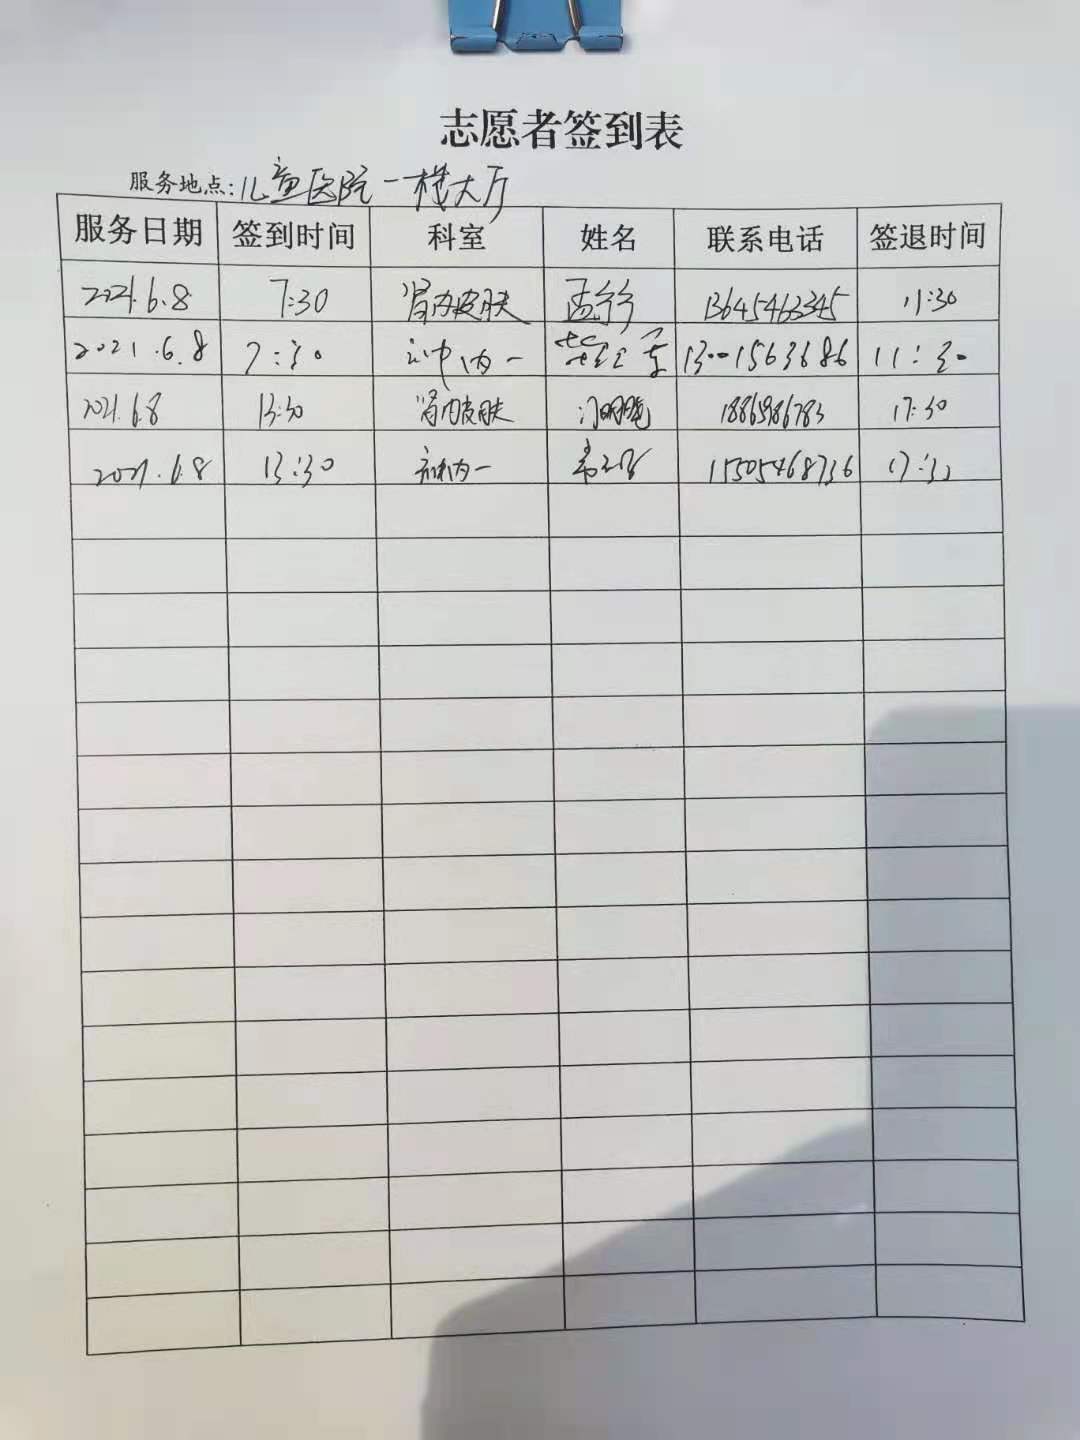 志愿者签到表
服务地点:儿童医院一楼大厅
服务日期 签到时间 科室 姓名 联系电话 签退时间
2021.6.8 7:30 肾内皮肤 孟 13645463345 11:30
2021.6.8 7:30 神内一 13001563686 11:30
2021.6.8 13:30 肾内皮肤 18865986783 17:30
2021.6.8 13:30 神内一 15505468736 17:30